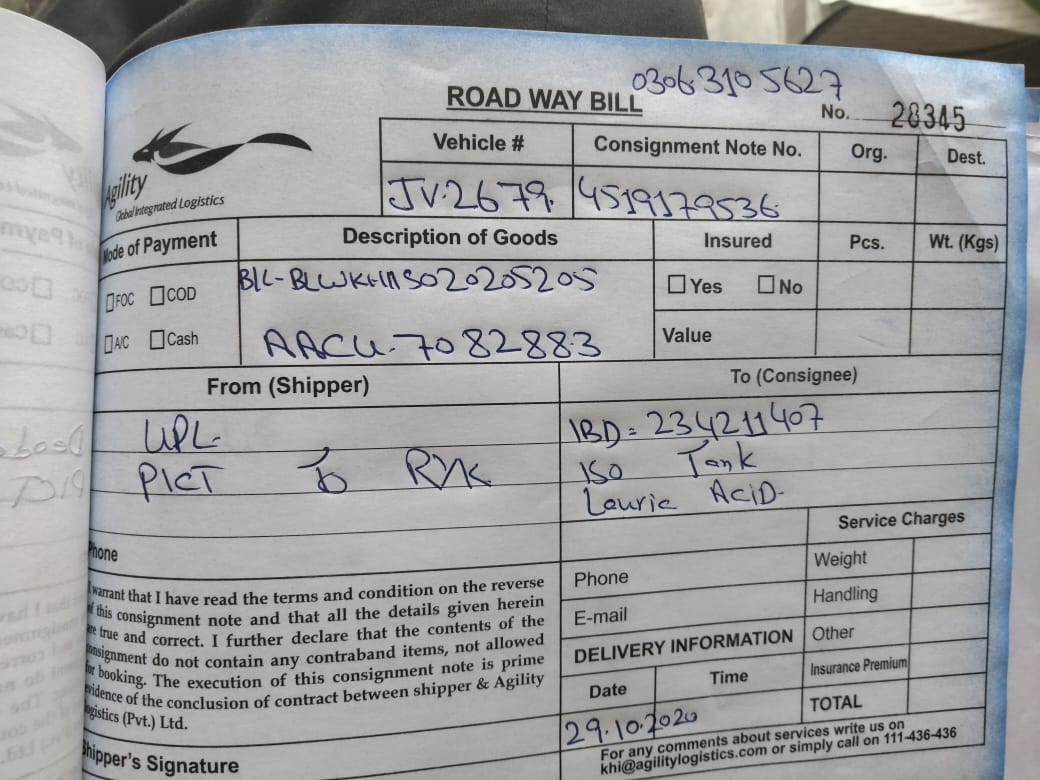 0306.310 5627
ROAD WAY BILL
No. 28345
Agility
Global Integrated Logistics
Vehicle # Consignment Note No. Org. Dest.
JV.2679. 4519179536
Mode of Payment Description of Goods Insured Pcs. Wt. (Kgs)
FOC COD
A/C Cash
AACU-7082883
Yes No
Value
From (Shipper) To (Consignee)
UPL
PICT To RYK
IBD = 234211407
ISO Tank
Lauric AciD-
Phone
I warrant that I have read the terms and condition on the reverse
of this consignment note and that all the details given herein
are true and correct. I further declare that the contents of the
consignment do not contain any contraband items, not allowed
for booking. The execution of this consignment note is prime
evidence of the conclusion of contract between shipper & Agility
Logistics (Pvt.) Ltd.
Shipper's Signature
Phone
E-mail
DELIVERY INFORMATION
Date Time
29.10.2020
Service Charges
Weight
Handling
Other
Insurance Premium
TOTAL
For any comments about services write us on
khi@agilitylogistics.com or simply call on 111-436-436